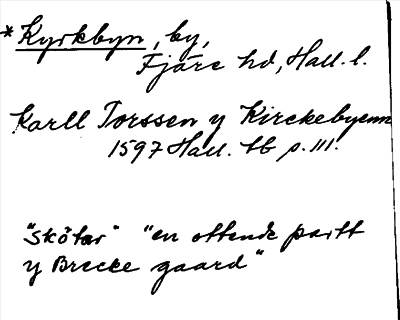 *Kyrkbyn, by,
Fjäre hd, Hall. l.
Karll Torssen y Kirckebyenn
1597 Hall. tb p. 111.
"skötar" "en ottende partt
y Brecke gaard"